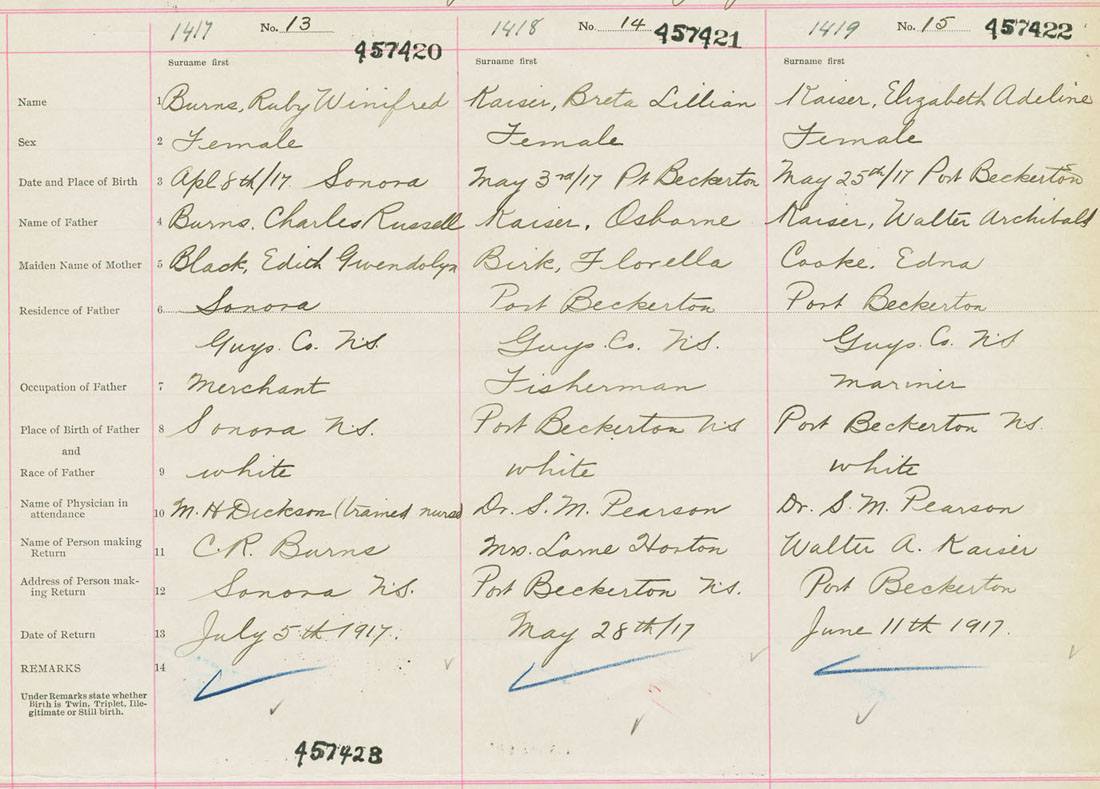 1417 No. 13 457420 1418 No. 14 457421 1419 No. 15 457422
Surname first Surname first Surname first
Name 1 Burns, Ruby Winifred Kaiser, Breta Lillian Kaiser, Elizabeth Adeline
Sex 2 Female Female Female
Date and Place of Birth 3 Apl 8th/17 Sonora May 3rd/17 Pt Beckerton May 25th/17 Port Beckerton
Name of Father 4 Burns, Charles Russell Kaiser, Osborne Kaiser, Walter Archibald
Maiden Name of Mother 5 Black, Edith Gwendolyn Birk, Florella Cooke, Edna
Residence of Father 6 Sonora Port Beckerton Port Beckerton
Guys. Co. N.S. Guys. Co. N.S. Guys. Co. N.S
Occupation of Father 7 Merchant Fisherman Mariner
Place of Birth of Father 8 Sonora N.S. Port Beckerton N.S Port Beckerton N.S.
and
Race of Father 9 white white white
Name of Physician in
attendance 10 M. H Dickson (trained nurse) Dr. S. M. Pearson Dr. S. M. Pearson
Name of Person making
Return 11 C.R. Burns Mrs. Lorne Horton Walter A. Kaiser
Address of Person mak-
ing Return 12 Sonora N.S. Port Beckerton N.S. Port Beckerton
Date of Return 13 July 5th 1917. May 28th/17 June 11th 1917.
REMARKS 14
Under Remarks state whether
Birth is Twin, Triplet, Ille-
gitimate or Still birth.
457423